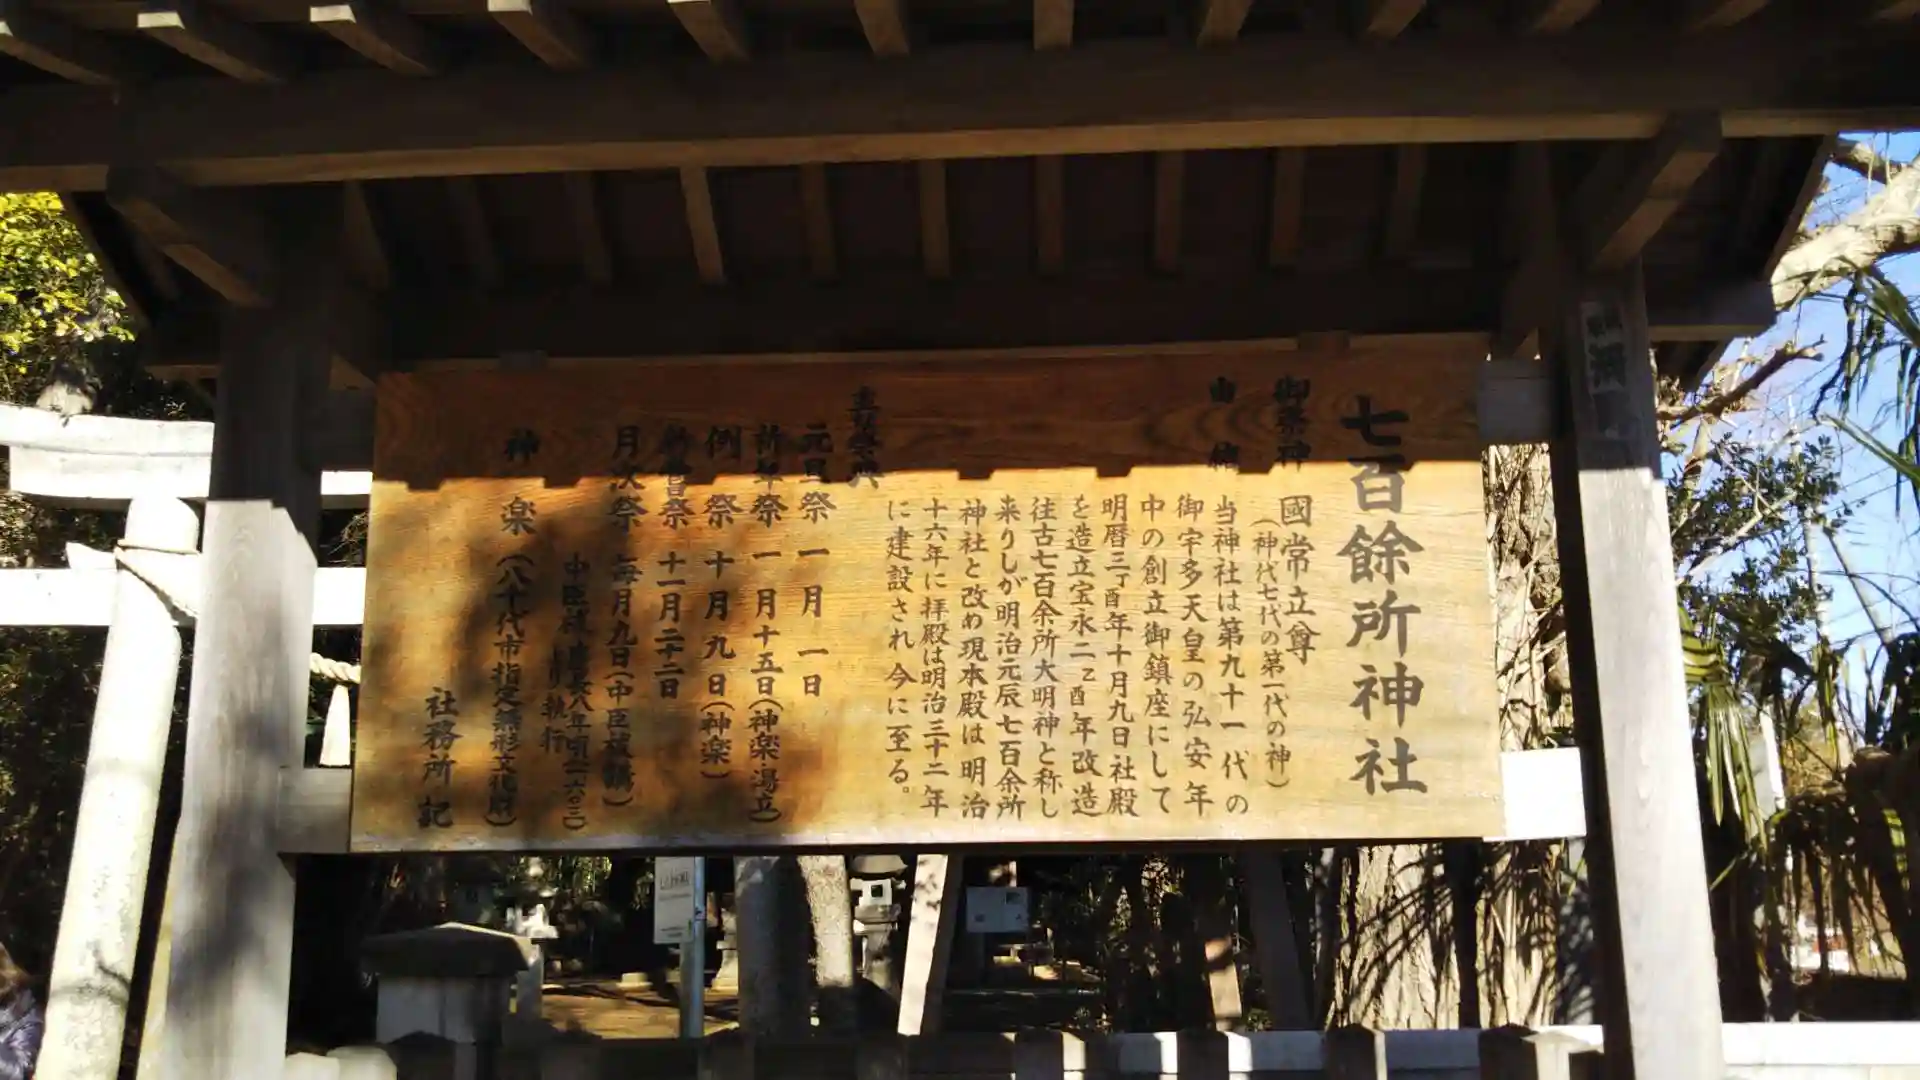 七百餘所神社
御祭神
國常立尊
(神代七代の第一代の神)
由緒
当神社は第九十一代の
御宇多天皇の弘安年
中の創立御鎮座にして
明暦三丁酉年十月九日社殿
を造立宝永二乙酉年改造
往古七百余所大明神と称し
来りしが明治元辰七百余所
神社と改め現本殿は明治
十六年に拝殿は明治三十二年
に建設され今に至る。
主なる祭典
元旦祭 一月一日
祈年祭 一月十五日(神楽湯立)
例祭 十月九日(神楽)
新嘗祭 十一月二十二日
月次祭 毎月九日(中臣祓講)
中臣祓 慶長八年頃(一六〇三)
より執行
神楽(八千代市指定無形文化財)
社務所記